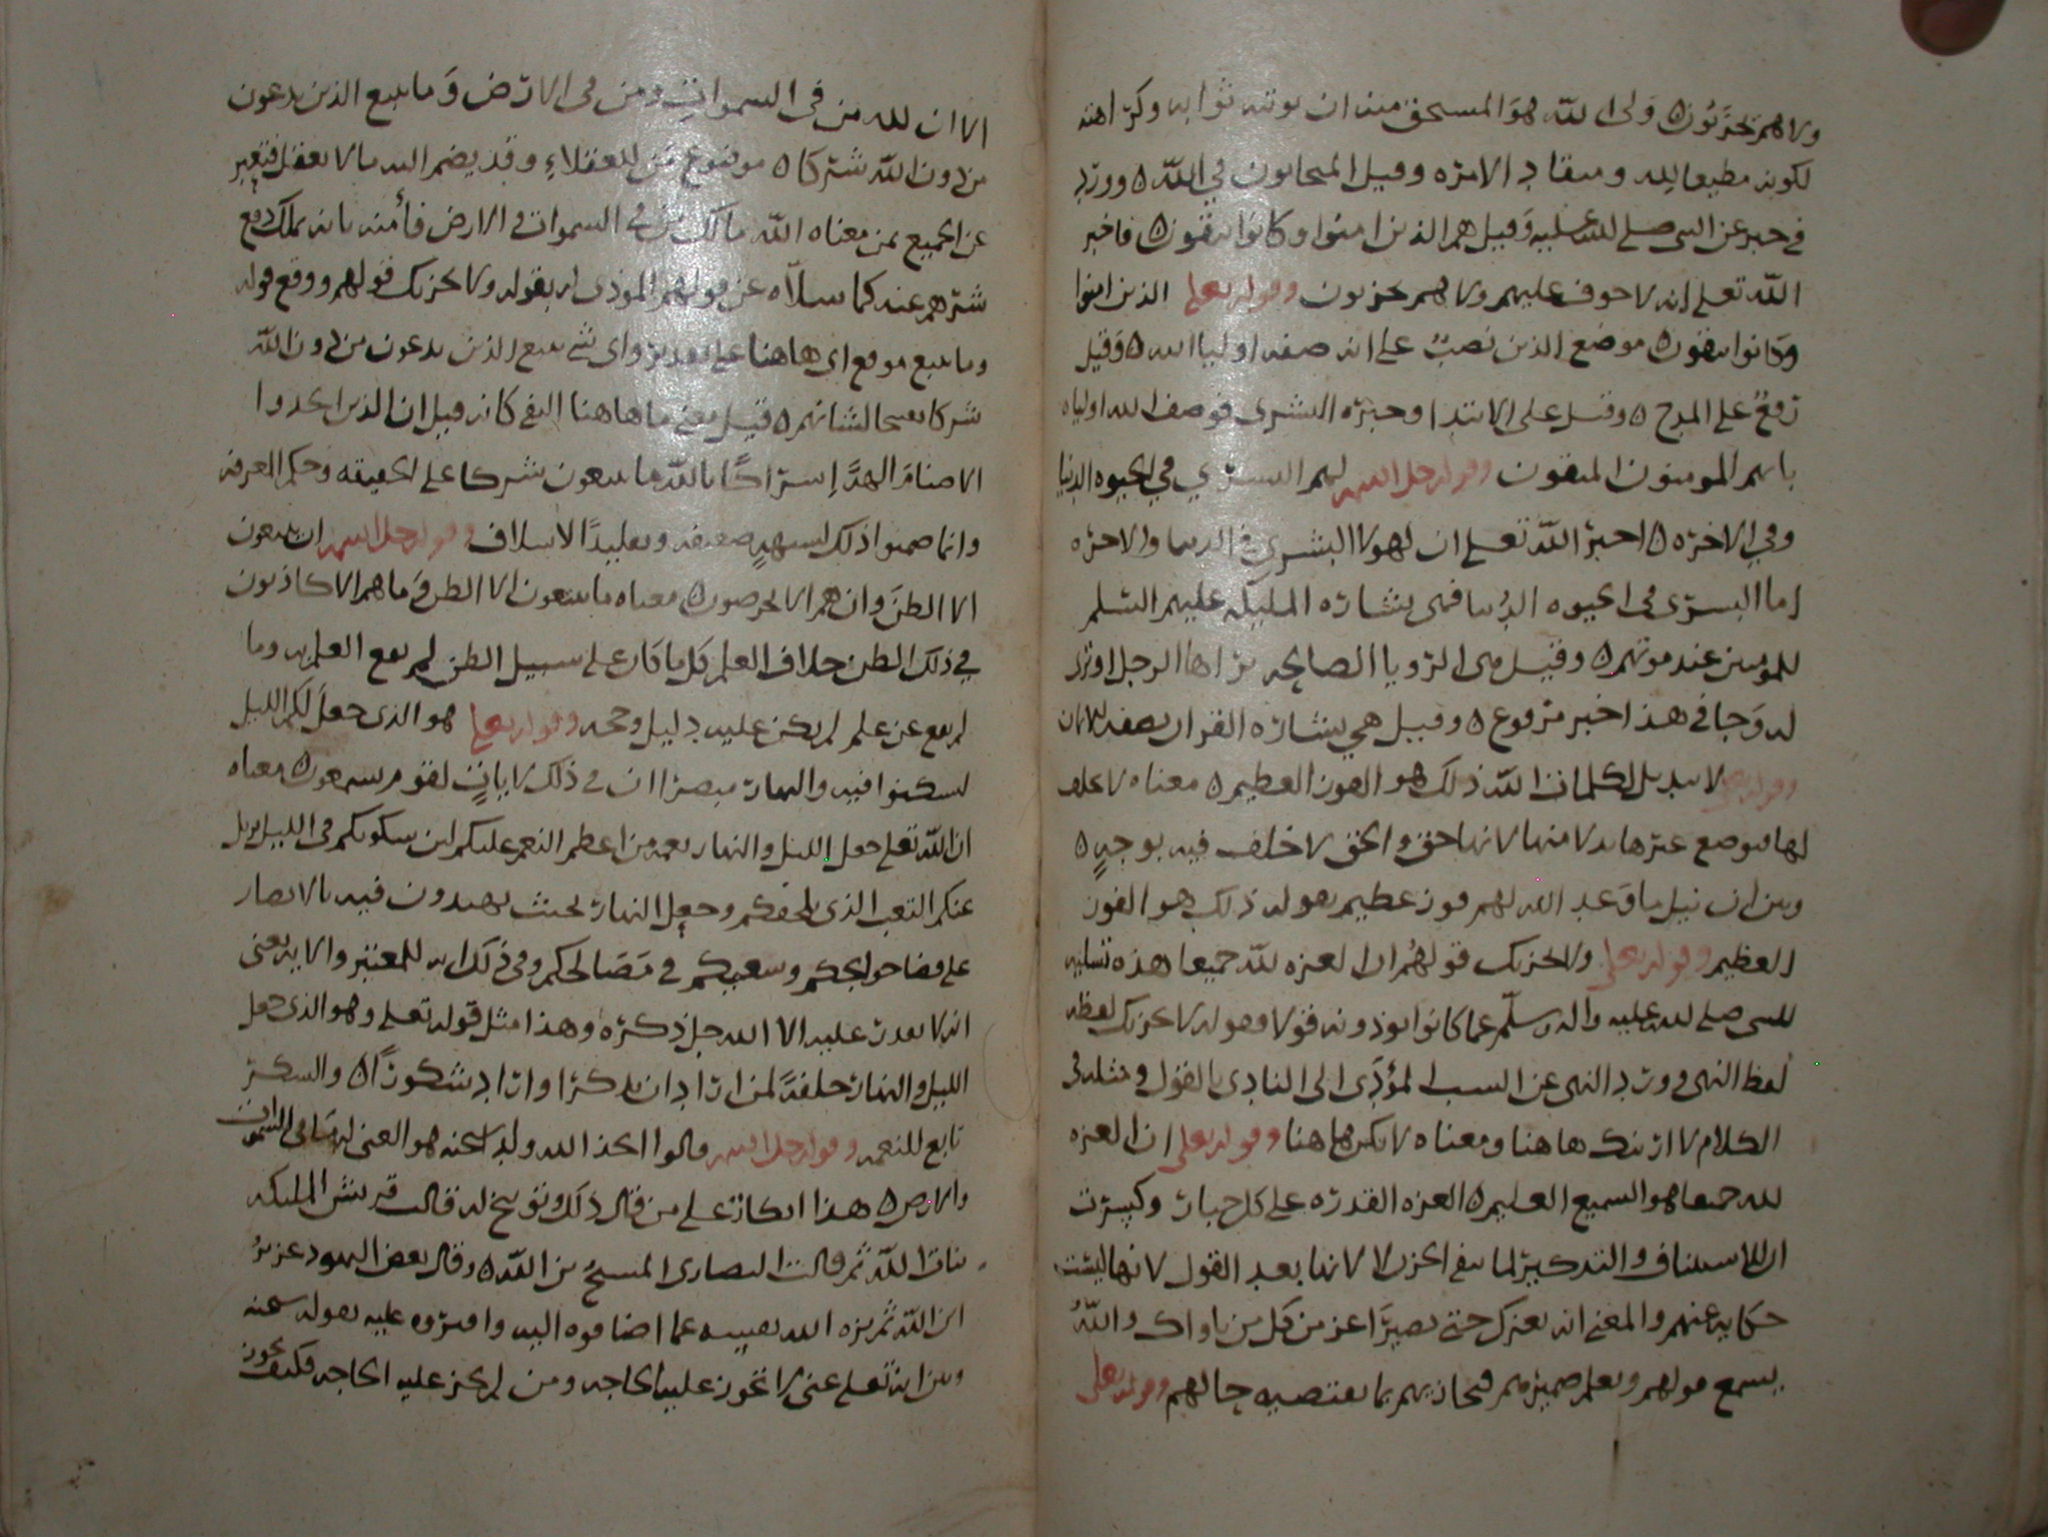 ولا هم يحزنون ه ولي الله هو المستحق منه ان يوتيه ثوابه وكرامته
لكونه مطيعا لله ومنقاد الامره وقيل المتحابون في الله ه وورد
في خبر عن النبي صلى الله عليه وقيل هم الذين امنوا وكانوا يتقون ه فاخبر
الله تعلى انه لا خوف عليهم ولا هم يحزنون وقوله تعلى الذين امنوا
وكانوا يتقون ه موضع الذين نصبٌ على انه صفه اوليا الله ه وقيل
رفعٌ على المدح ه وقيل على الابتدا وخبره البشرى فوصف الله اولياه
بانهم المومنون المتقون وقوله جل اسمه لهم البشرى في الحيوه الدنيا
وفي الاخره ه اخبر الله تعلى ان لهولا البشرى في الدنيا والاخره
اما البشرى في الحيوه الدنيا فهي بشاره المليكه عليهم السلم
للمومنين عند موتهم ه وقيل هي الرويا الصالحه يراها الرجل او ترى
له وجا في هذا خبر مرفوع ه وقيل هي بشاره القران بصفه الايمان
وقوله تعلى لا تبديل لكلمات الله ذلك هو الفوز العظيم ه معناه لا خلف
لها فتوضع غيرها بدلا منها لانها حق والحق لا خلف فيه بوجهٍ ه
وبين ان نيل ما وعد الله لهم فوز عظيم بقوله ذلك هو الفوز
العظيم وقوله تعلى ولا يحزنك قولهم ان العزه لله جميعا هذه تسليه
للنبي صلى الله عليه واله وسلّم عما كانوا يوذونه قولا وقوله لا يحزنك لفظه
لفظ النهي وورد النهي عن السبب المؤدّى الى التاذي بالقول ومثله في
الكلام لا ارينك هاهنا ومعناه لا تكن هاهنا وقوله تعلى ان العزه
لله جميعا هو السميع العليم ه العزه القدره على كل جبار وكسرت
ان للاستيناف والتذكير لما ينفي الحزن لا لانها بعد القول لانها ليست
حكايه عنهم والمعنى انه يعزك حتى تصير اعز من كل من ناواك والله
يسمع قولهم ويعلم ضميرهم فيجازيهم بما يقتضيه حالهم وقوله تعلى
الا ان لله من في السموات ومن في الارض وما يتبع الذين يدعون
من دون الله شركا ه موضوع من للعقلاءِ وقد يضم اليه ما لا يعقل فيعبر
عن الجميع بمن معناه الله مالك من في السموات والارض فأمنه بانه يملك دفع
شرهم عنه كما سلاه عن قولهم الموذي له بقوله ولا يحزنك قولهم ووقع قوله
وما يتبع موقع اي هاهنا على تقدير واي شي يتبع الذين يدعون من دون الله
شركا تقبيحا لشانهم ه وقيل معنى ما هاهنا النفي كانه قيل ان الذين اتخذوا
الاصنام الهةً إشراكًا بالله ما يتبعون شركا على الحقيقه وحكم المعرفه
وانما ضمنوا ذلك لشبهةٍ ضعيفه وتقليدًا لاسلاف وقوله جل اسمه ان يتبعون
الا الظن وان هم الا يخرصون ه معناه ما يتبعون الا الظن وما هم الا كاذبون
في ذلك الظن خلاف العلم كل ما كان على سبيل الظن لم يقع العلم به وما
لم يقع عن علم لم يكن عليه دليل وحجه وقوله تعلى هو الذي جعل لكم الليل
لتسكنوا فيه والنهار مبصرا ان في ذلك لاياتٍ لقوم يسمعون ه معناه
ان الله تعلى جعل الليل والنهار نعمه من اعظم النعم عليكم لان سكونكم في الليل يزيل
عنكم التعب الذي يلحقكم وجعل النهار بحيث تهتدون فيه بالابصار
على قضا حوايجكم وسعيكم في مصالحكم وفي ذلك ايه للمعتبر والايه يعني
انه لا يقدر عليه الا الله جل ذكره وهذا مثل قوله تعلى وهو الذي جعل
الليل والنهار خلفةً لمن اراد ان يذكر او اراد شكورًا ه والشكر
تابع للنعمه وقوله جل اسمه قالوا اتخذ الله ولدا سبحنه هو الغني له ما في السموات
والارض ه هذا انكار على من قال ذلك وتوبيخ له قالت قريش المليكه
بنات الله ثم قالت النصارى المسيحُ بن الله ه وقال بعض اليهود عزيرُ
ابن الله ثم نزه الله نفسه عما اضافوه اليه وافتروه عليه بقوله سبحنه
وبين انه تعلى غني لا تجوز عليه الحاجه ومن لم يجز عليه الحاجه فكيف يجوز